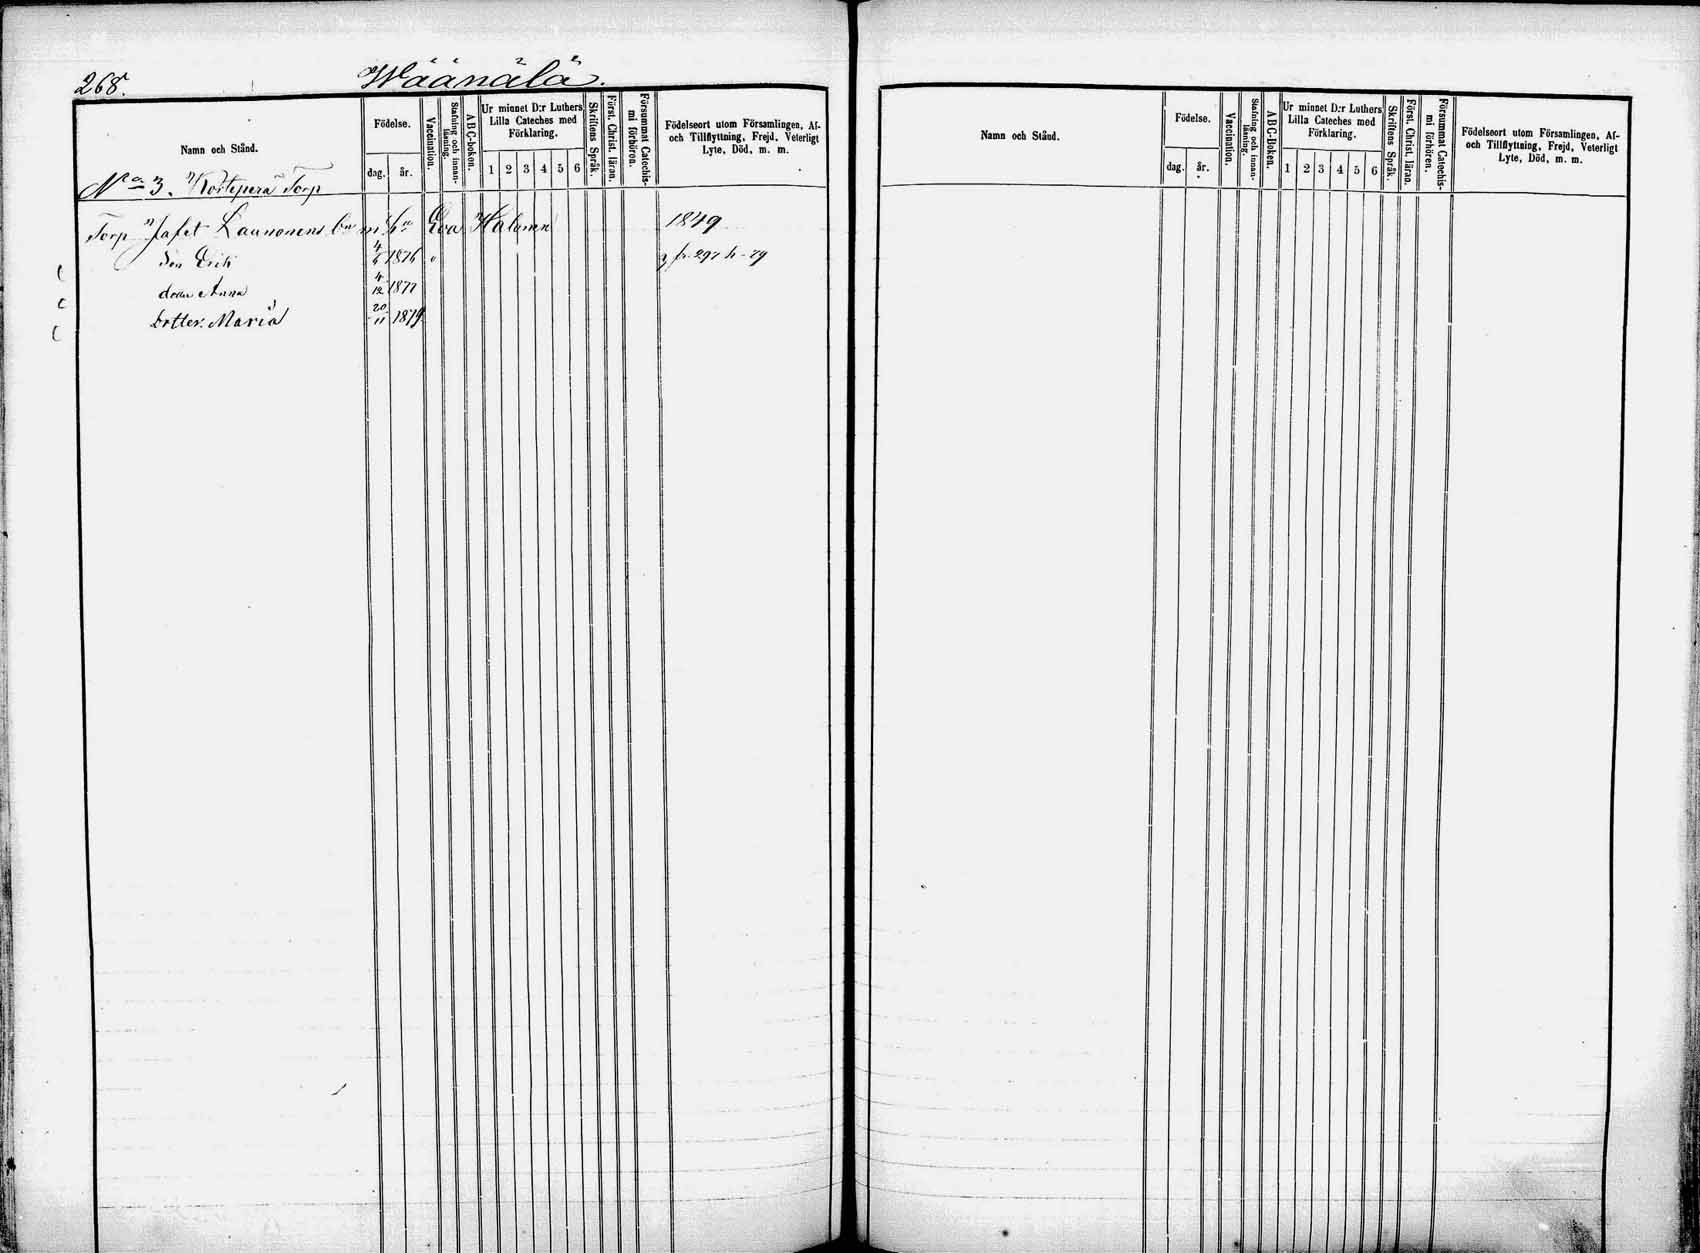 268.
Wäänälä.
Namn och Stånd.
Födelse.
dag. år.
Vaccination.
Stafning och innanläsning.
ABC-boken.
Ur minnet D:r Luthers Lilla Cateches med Förklaring.
1 2 3 4 5 6
Skriftens Språk.
Först. Christ. läran.
Försummat Catechismi förhören.
Födelseort utom Församlingen, Af- och Tillflyttning, Frejd, Veterligt Lyte, Död, m. m.
No 3. Kortepera Torp
Torp Jafet Launonens bn m h Eva Halonen 1849
Son Erik 4/5 1876 fr. 297 h -79
dotter Anna 4/12 1877
Dotter Maria 20/11 1879
Namn och Stånd.
Födelse.
dag. år.
Vaccination.
Stafning och innanläsning.
ABC-Boken.
Ur minnet D:r Luthers Lilla Cateches med Förklaring.
1 2 3 4 5 6
Skriftens Språk.
Först. Christ. läran.
Försummat Catechismi förhören.
Födelseort utom Församlingen, Af- och Tillflyttning, Frejd, Veterligt Lyte, Död, m. m.